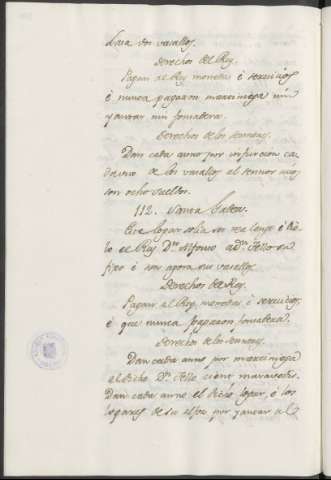 Lara son vasallos.
Derechos del Rey.
Pagan al Rey monedas é servicios
é nunca pagaron martiniega nin
yantar nin fonsadera.
Derechos de los sennores.
Dan cada anno por infurcion ca-
da uno de los vasallos al sennor
son ocho sueldos.
112. Santa
Este logar solia ser é dió-
lo el Rey Dn. Alfonso á Dn. Tello su
fijo é son agora sus vasallos.
Derechos del Rey.
Pagan al Rey monedas é servicios,
é que nunca pagaron fonsadera.
Derechos de los sennores.
Dan cada anno por martiniega
al dicho Dn. Tello cient maravedis.
Dan cada anno el dicho logar, é los
logares de su alfoz por yantar al